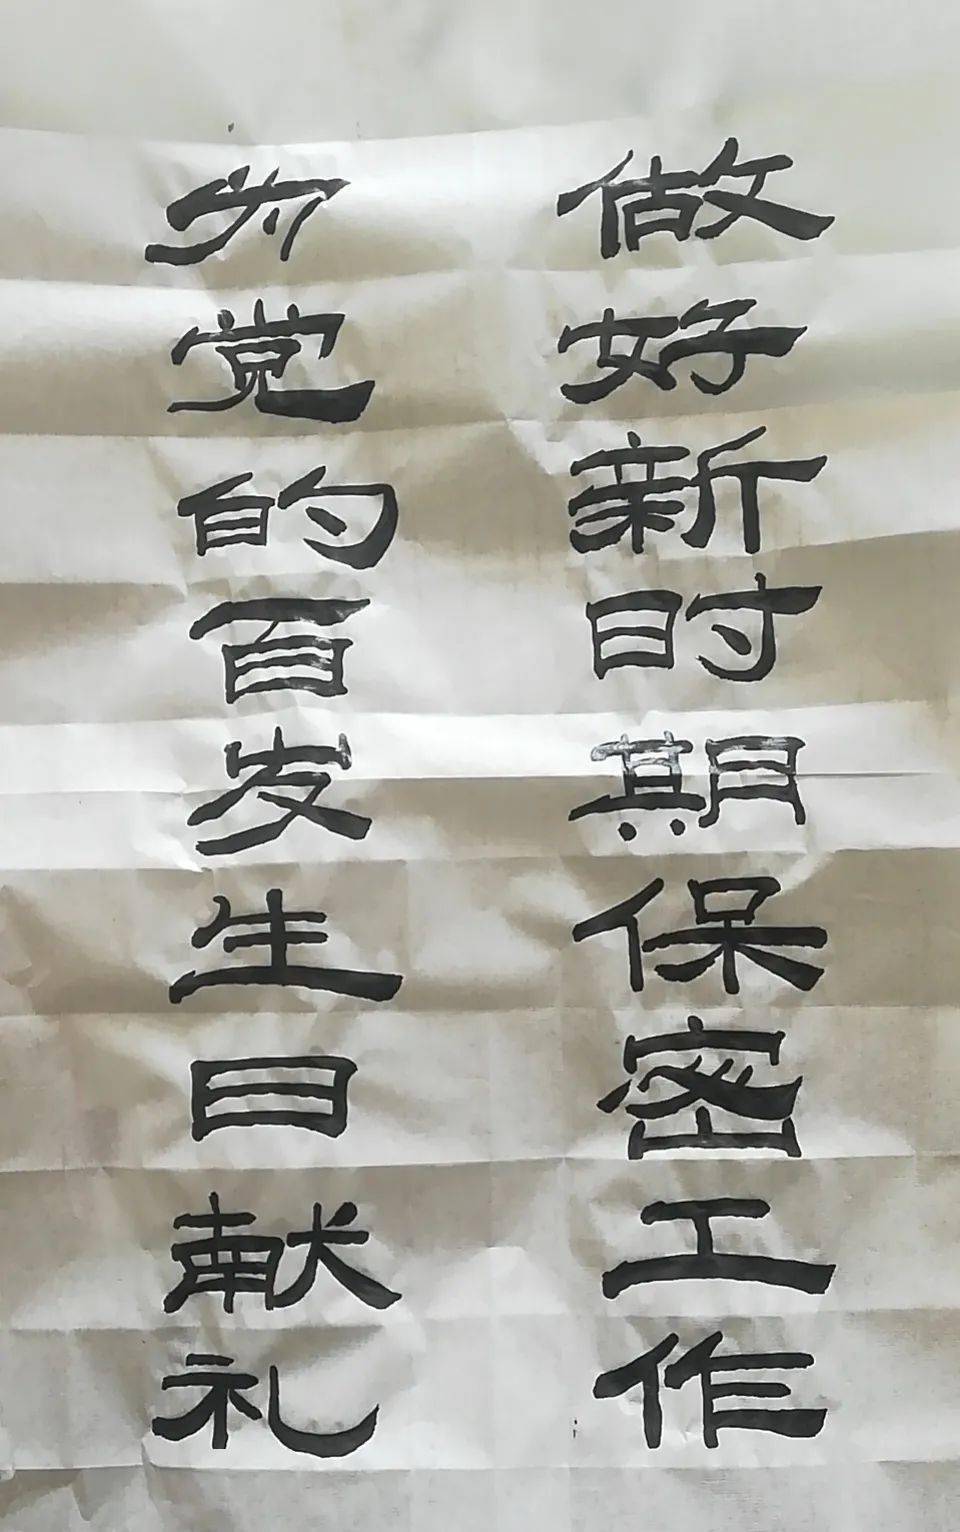 做好新时期保密工作
为党的百岁生日献礼